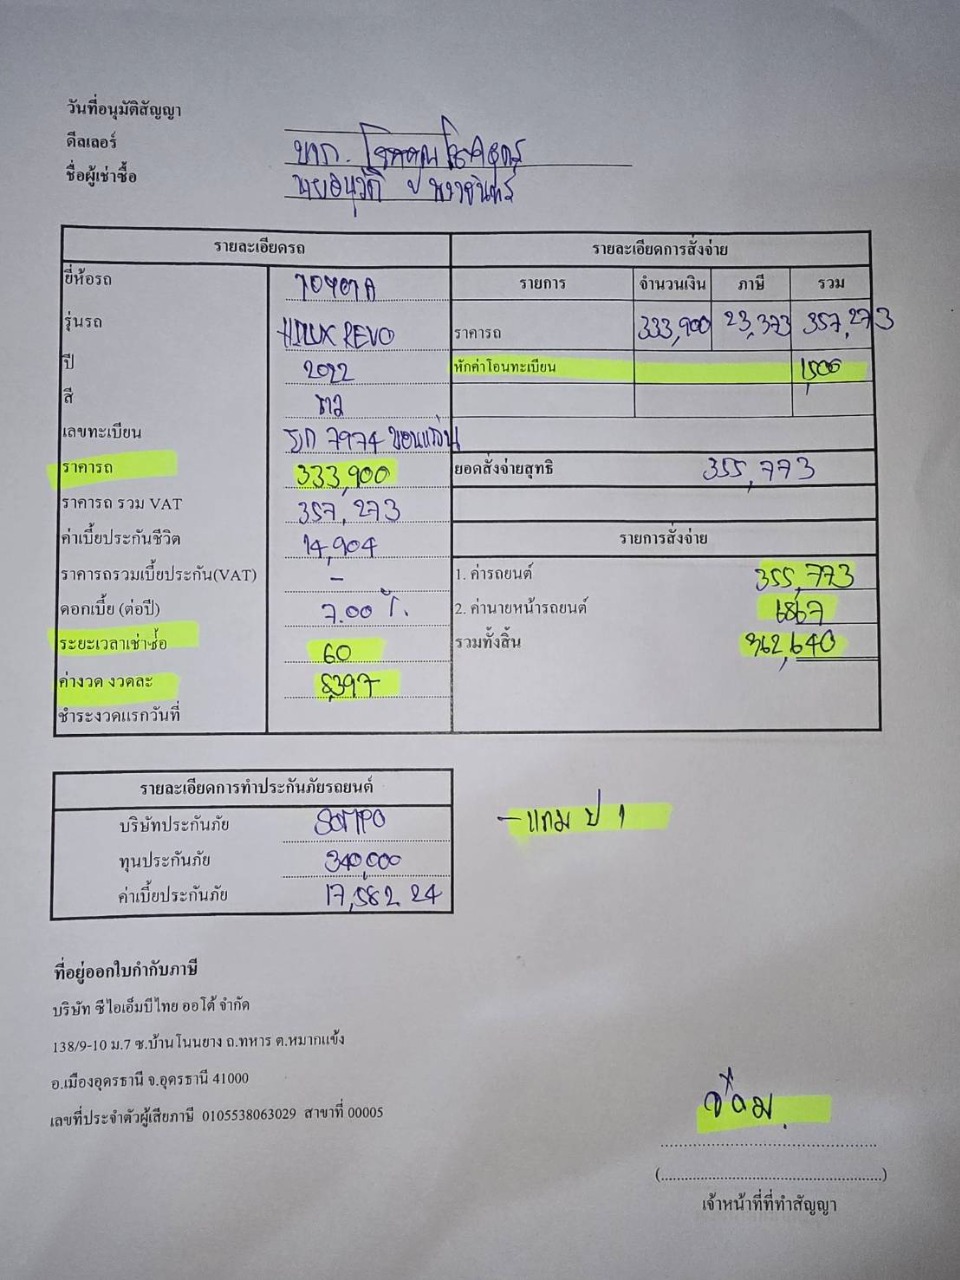 วันที่อนุมัติสัญญา
ดีลเลอร์ บจก.
ชื่อผู้เช่าซื้อ นายอนุวัติ
รายละเอียดรถ
ยี่ห้อรถ TOYOTA
รุ่นรถ HILUX REVO
ปี 2022
สี ขาว
เลขทะเบียน 7974 ขอนแก่น
ราคารถ 333,900
ราคารถ รวม VAT 357,273
ค่าเบี้ยประกันชีวิต 14,904
ราคารถรวมเบี้ยประกัน(VAT) -
ดอกเบี้ย (ต่อปี) 7.00 %
ระยะเวลาเช่าซื้อ 60
ค่างวด งวดละ 8,397
ชำระงวดแรกวันที่
รายละเอียดการสั่งจ่าย
รายการ จำนวนเงิน ภาษี รวม
ราคารถ 333,900 23,373 357,273
หักค่าโอนทะเบียน 1,500
ยอดสั่งจ่ายสุทธิ 355,773
รายการสั่งจ่าย
1. ค่ารถยนต์ 355,773
2. ค่านายหน้ารถยนต์ 6867
รวมทั้งสิ้น 362,640
รายละเอียดการทำประกันภัยรถยนต์
บริษัทประกันภัย SOMPO
ทุนประกันภัย 340,000
ค่าเบี้ยประกันภัย 17,582.24
- แถม ป 1
ที่อยู่ออกใบกำกับภาษี
บริษัท ซีไอเอ็มบีไทย ออโต้ จำกัด
138/9-10 ม.7 ซ.บ้านโนนยาง ถ.ทหาร ต.หมากแข้ง
อ.เมืองอุดรธานี จ.อุดรธานี 41000
เลขที่ประจำตัวผู้เสียภาษี 0105538063029 สาขาที่ 00005
(..........)
เจ้าหน้าที่ที่ทำสัญญา